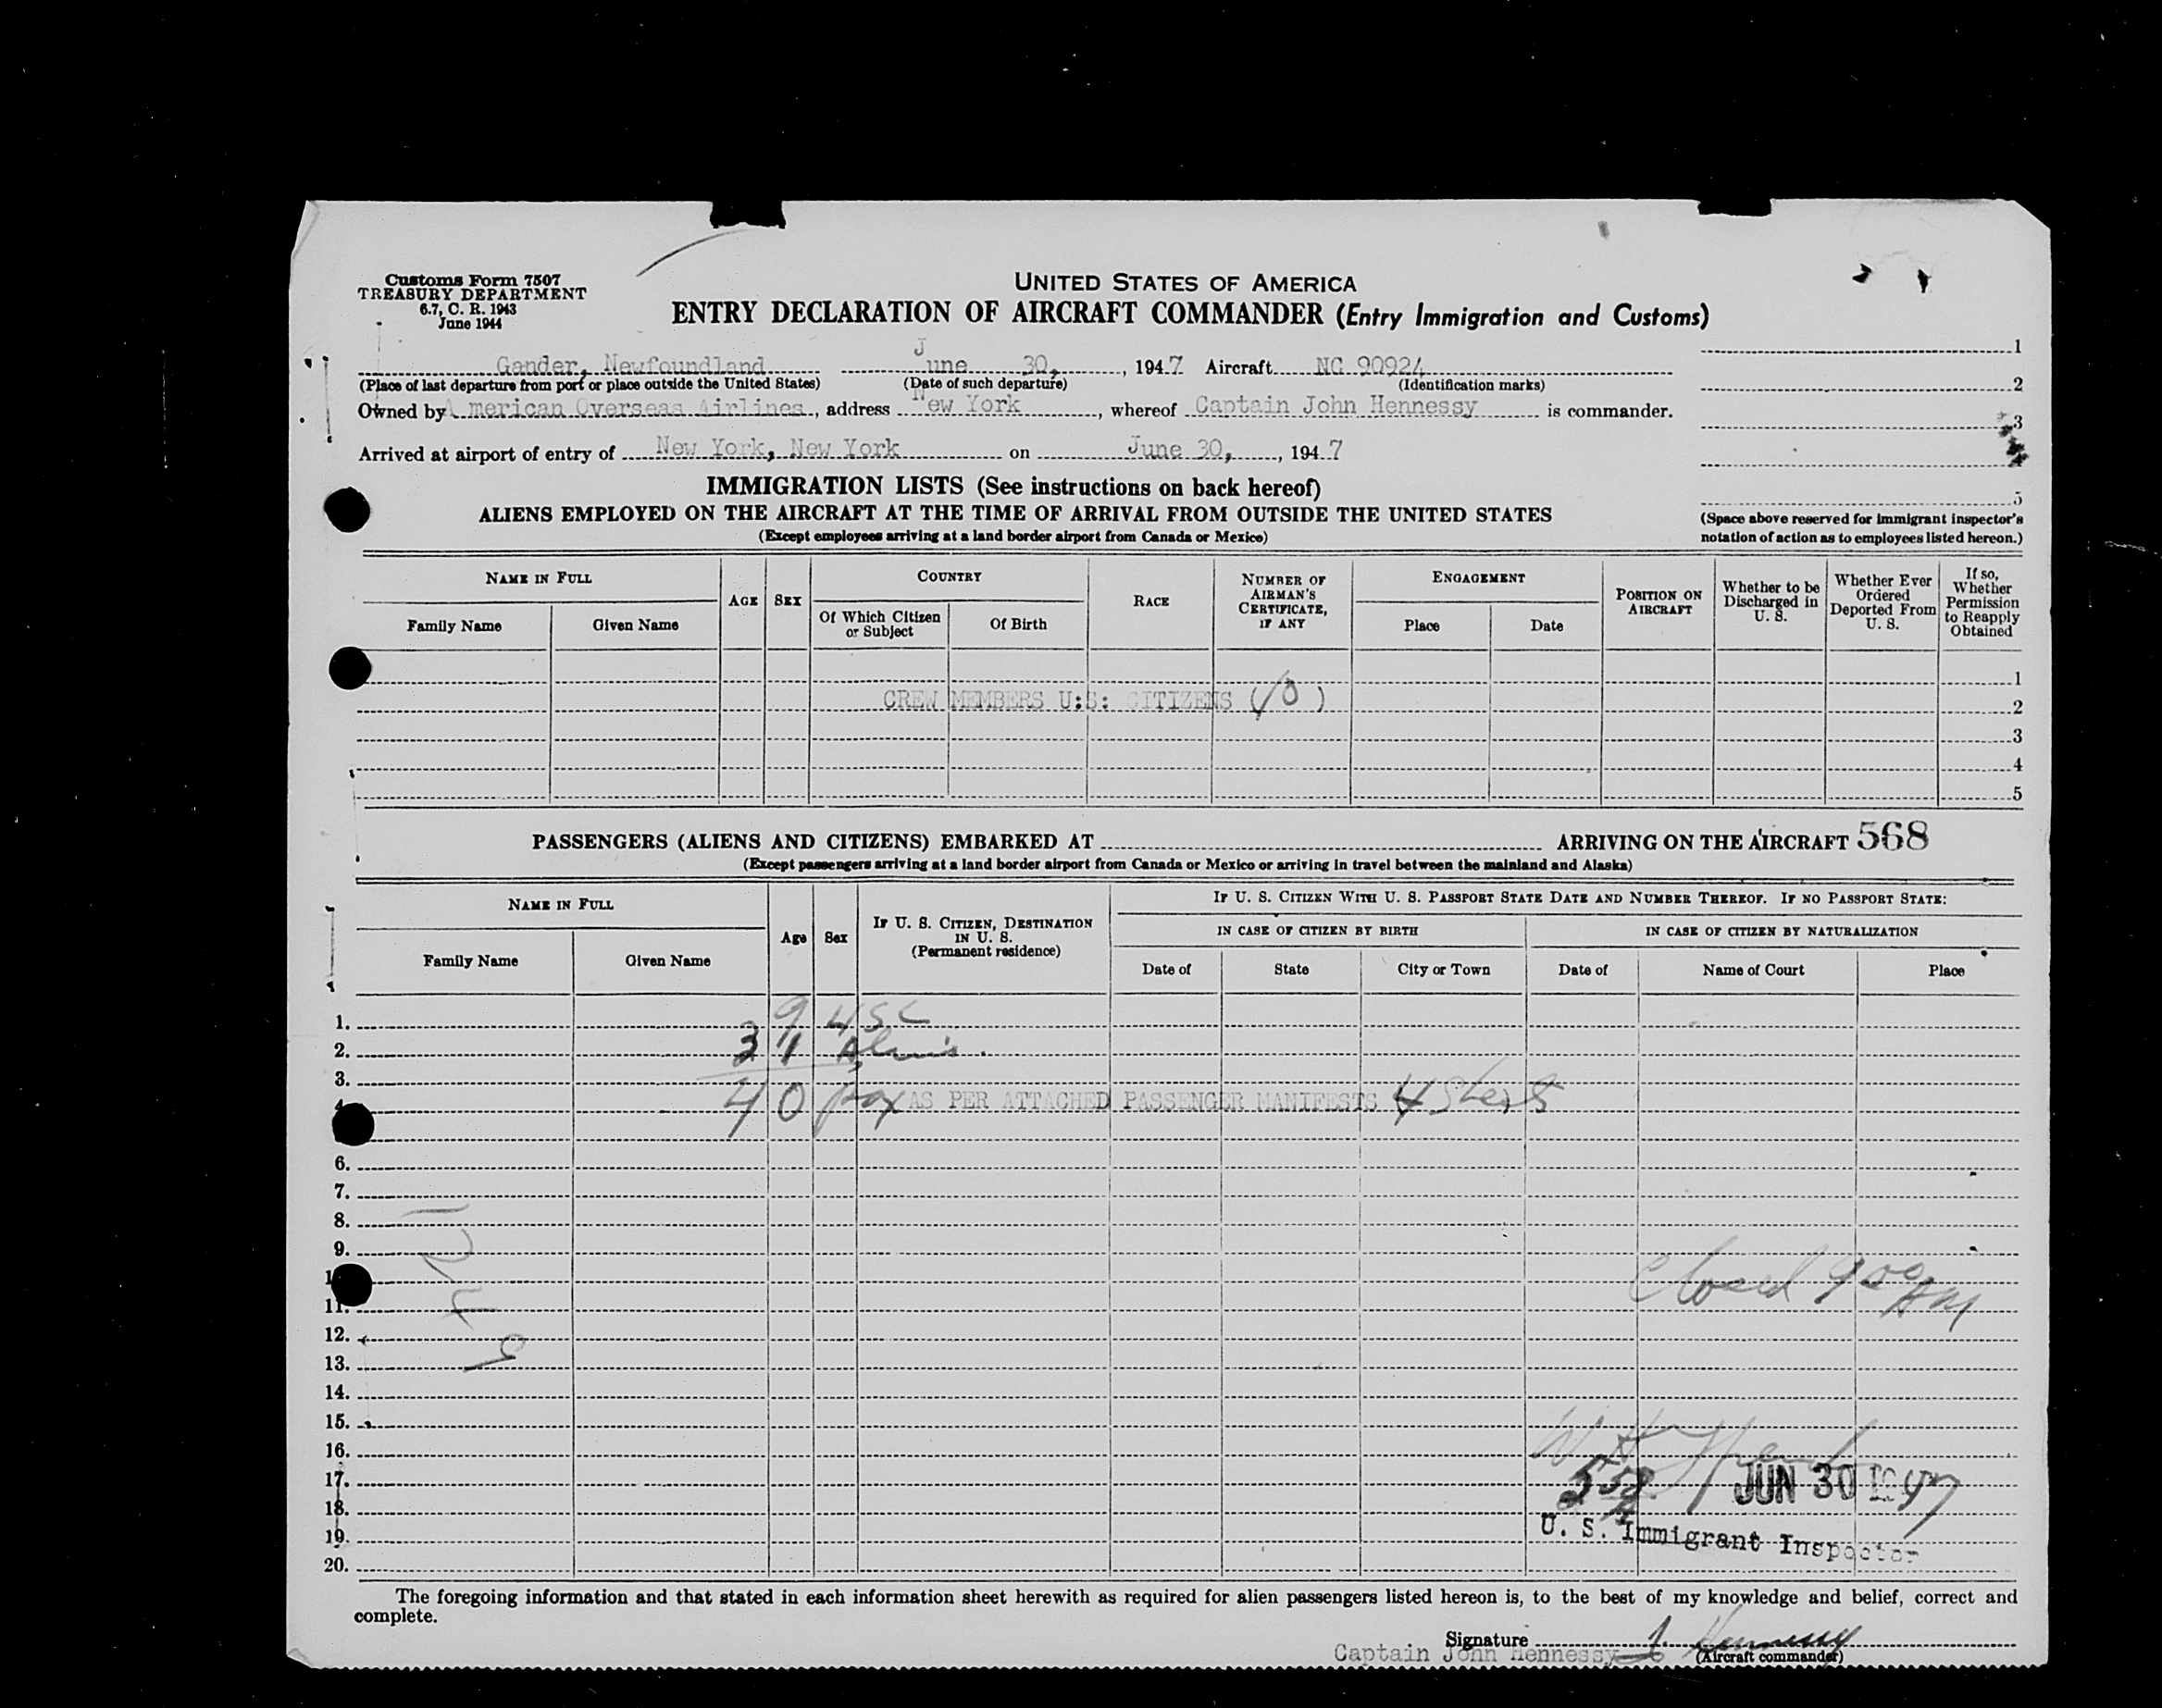 Customs Form 7507
TREASURY DEPARTMENT
6.7, C. R. 1943
June 1944
UNITED STATES OF AMERICA
ENTRY DECLARATION OF AIRCRAFT COMMANDER (Entry Immigration and Customs)
Gander, Newfoundland June 30, , 1947 Aircraft NC 90924
(Place of last departure from port or place outside the United States) (Date of such departure) (Identification marks)
Owned by American Overseas Airlines, address New York, whereof Captain John Hennessy is commander.
Arrived at airport of entry of New York, New York on June 30, , 1947
1
2
3
4
5
(Space above reserved for immigrant inspector's
notation of action as to employees listed hereon.)
IMMIGRATION LISTS (See instructions on back hereof)
ALIENS EMPLOYED ON THE AIRCRAFT AT THE TIME OF ARRIVAL FROM OUTSIDE THE UNITED STATES
(Except employees arriving at a land border airport from Canada or Mexico)
NAME IN FULL
Family Name
Given Name
AGE
SEX
COUNTRY
Of Which Citizen
or Subject
Of Birth
RACE
NUMBER OF
AIRMAN'S
CERTIFICATE,
IF ANY
ENGAGEMENT
Place
Date
POSITION ON
AIRCRAFT
Whether to be
Discharged in
U. S.
Whether Ever
Ordered
Deported From
U. S.
If so,
Whether
Permission
to Reapply
Obtained
1
CREW MEMBERS U:S: CITIZENS (10)
2
3
4
5
PASSENGERS (ALIENS AND CITIZENS) EMBARKED AT ARRIVING ON THE AIRCRAFT 568
(Except passengers arriving at a land border airport from Canada or Mexico or arriving in travel between the mainland and Alaska)
NAME IN FULL
Family Name
Given Name
Age
Sex
IF U. S. CITIZEN, DESTINATION
IN U. S.
(Permanent residence)
IF U. S. CITIZEN WITH U. S. PASSPORT STATE DATE AND NUMBER THEREOF. IF NO PASSPORT STATE:
IN CASE OF CITIZEN BY BIRTH
Date of
State
City or Town
IN CASE OF CITIZEN BY NATURALIZATION
Date of
Name of Court
Place
1. 9 USC
2. 31 Aliens.
3.
4. 40 pax AS PER ATTACHED PASSENGER MANIFESTS 4 Sheets
6.
7.
8.
9.
1
11.
12.
13.
14.
15.
16.
17.
18.
19.
20.
Closed 9 00 AM
JUN 30 1947
U. S. Immigrant Inspector
The foregoing information and that stated in each information sheet herewith as required for alien passengers listed hereon is, to the best of my knowledge and belief, correct and
complete.
Signature J. Hennessy
Captain John Hennessy (Aircraft commander)